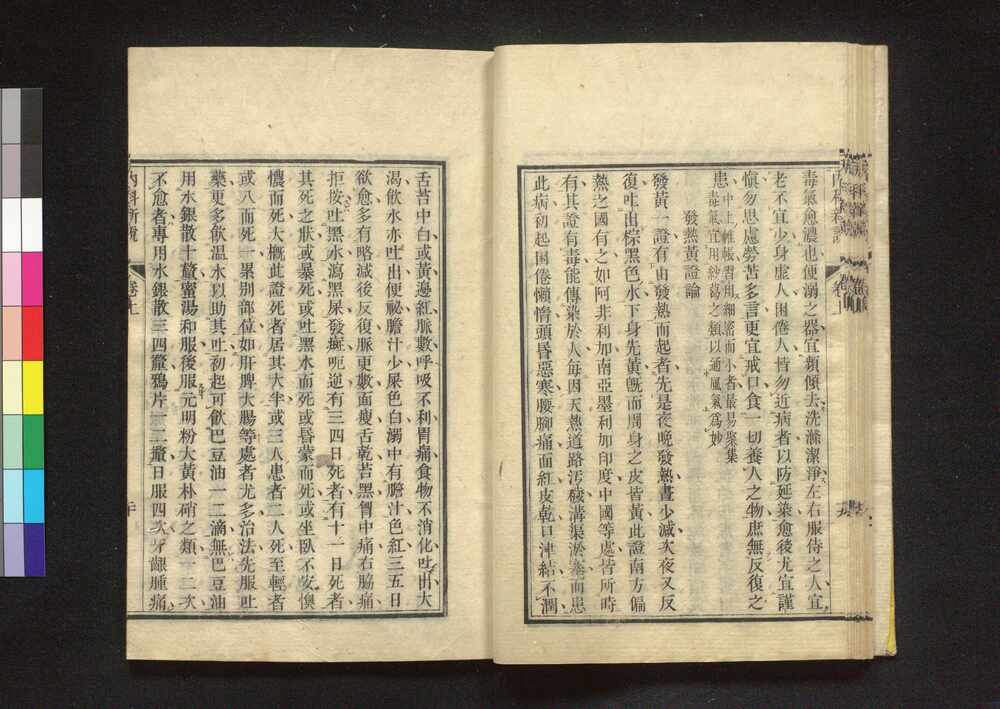 毒氣愈濃也便溺之器宜頻傾去洗滌潔淨左右服侍之人宜
老不宜少身虛人困倦人皆勿近病者以防延染愈後尤宜謹
愼勿思慮勞苦多言更宜戒口食一切養人之物庶無反復之
患牀上帷帳眉用細密而小者最易聚集
毒氣宜用紗葛之類以通風氣爲妙
發熱黃證論
發黃一證有由發熱而起者先是夜晚發熱晝少減次夜又反
復吐出棕黑色水下身先黃旣而周身之皮皆黃此證南方偏
熱之國有之如阿非利加南亞墨利加印度中國等處皆所時
有其證有毒能傳染於人每因天熱道路汚穢溝渠淤塞而患
此病初起困倦懶惰頭昏惡寒腰腳痛面紅皮乾口津結不潤
舌苔中白或黃邊紅脈數呼吸不利胃痛食物不消化吐出大
渴飲水亦吐出便秘膽汁少屎色白溺中有膽汁色紅三五日
欲愈多有略減後反復脈更數面瘦舌乾苔黑胃中痛右脇痛
拒按吐黑水瀉黑屎發斑呃逆有三四日死者有十一日死者
其死之狀或暴死或吐黑水而死或昏蒙而死或坐臥不安懊
憹而死大槪此證死者居其大半或三人患者二人死至輕者
或八而死一累別部位如肝脾大腸等處者尤多治法先服吐
藥更多飮溫水以助其吐初起可飮巴豆油一二滴無巴豆油
用水銀散十釐蜜湯和服後服元明粉大黃朴硝之類一二次
不愈者專用水銀散三四釐鴉片一二釐日服四次牙齦腫痛
內科新說
卷上